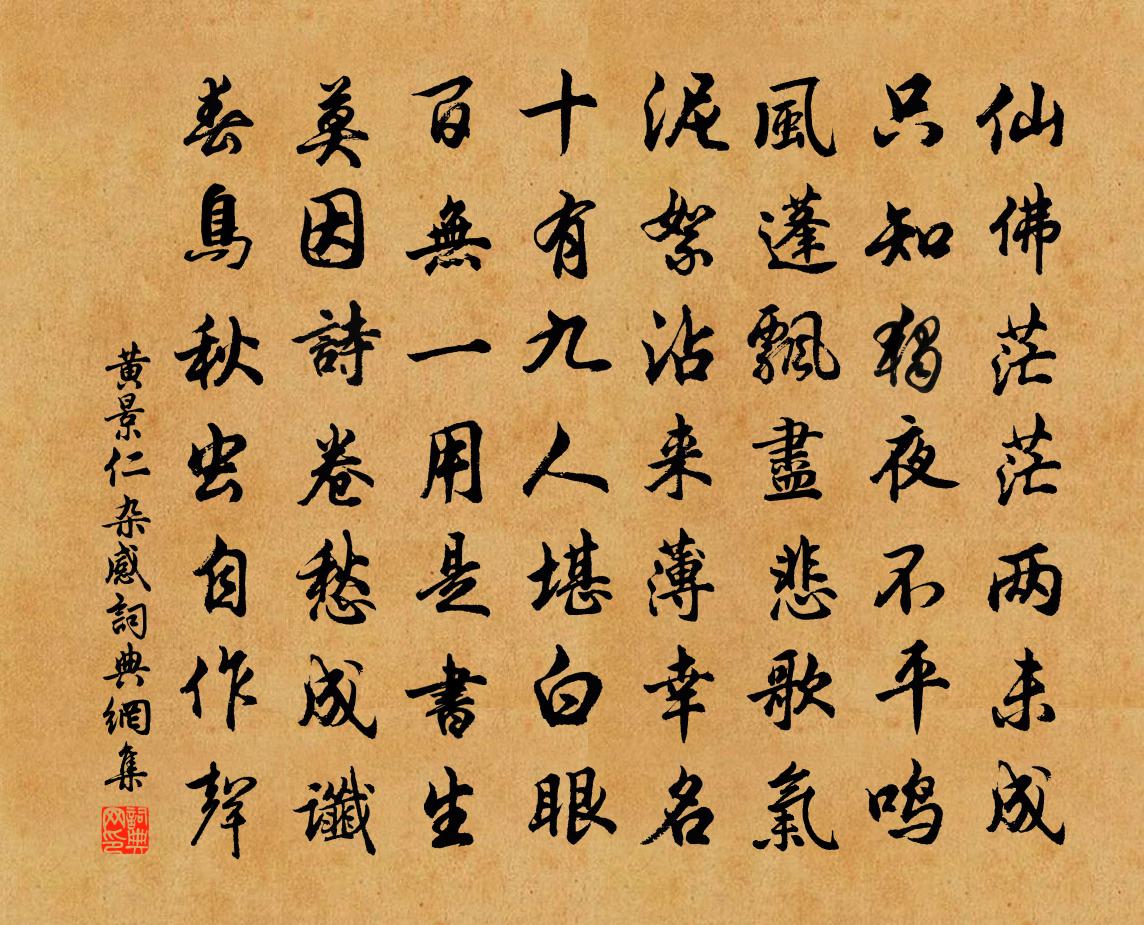 仙佛茫茫两未成
只知獨夜不平鸣
風蓬飄盡悲歌氣
泥絮沾来薄幸名
十有九人堪白眼
百無一用是書生
莫因詩卷愁成讖
春鳥秋虫自作聲
黄景仁杂感詞典網集
詞典網印